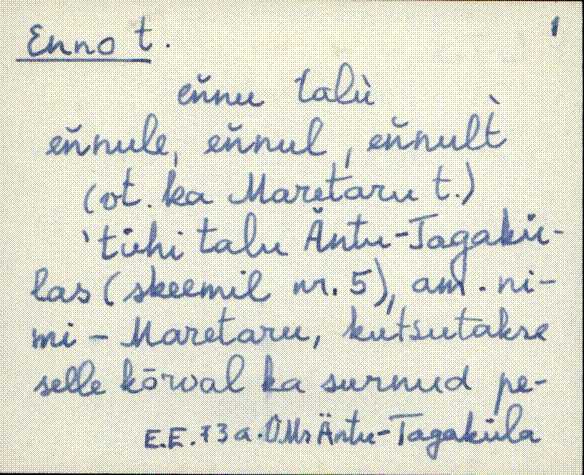 1
Enno t.
eňnu talù
eňnule, eňnul, eňnult̀
(vt. ka Maretaru t.)
'tühi talu Äntu-Tagakü-
las (skeemil nr. 5), am. ni-
mi - Maretaru, kutsutakse
selle kõrval ka surnud pe-
E.E. 73 a. VMr Äntu-Tagaküla